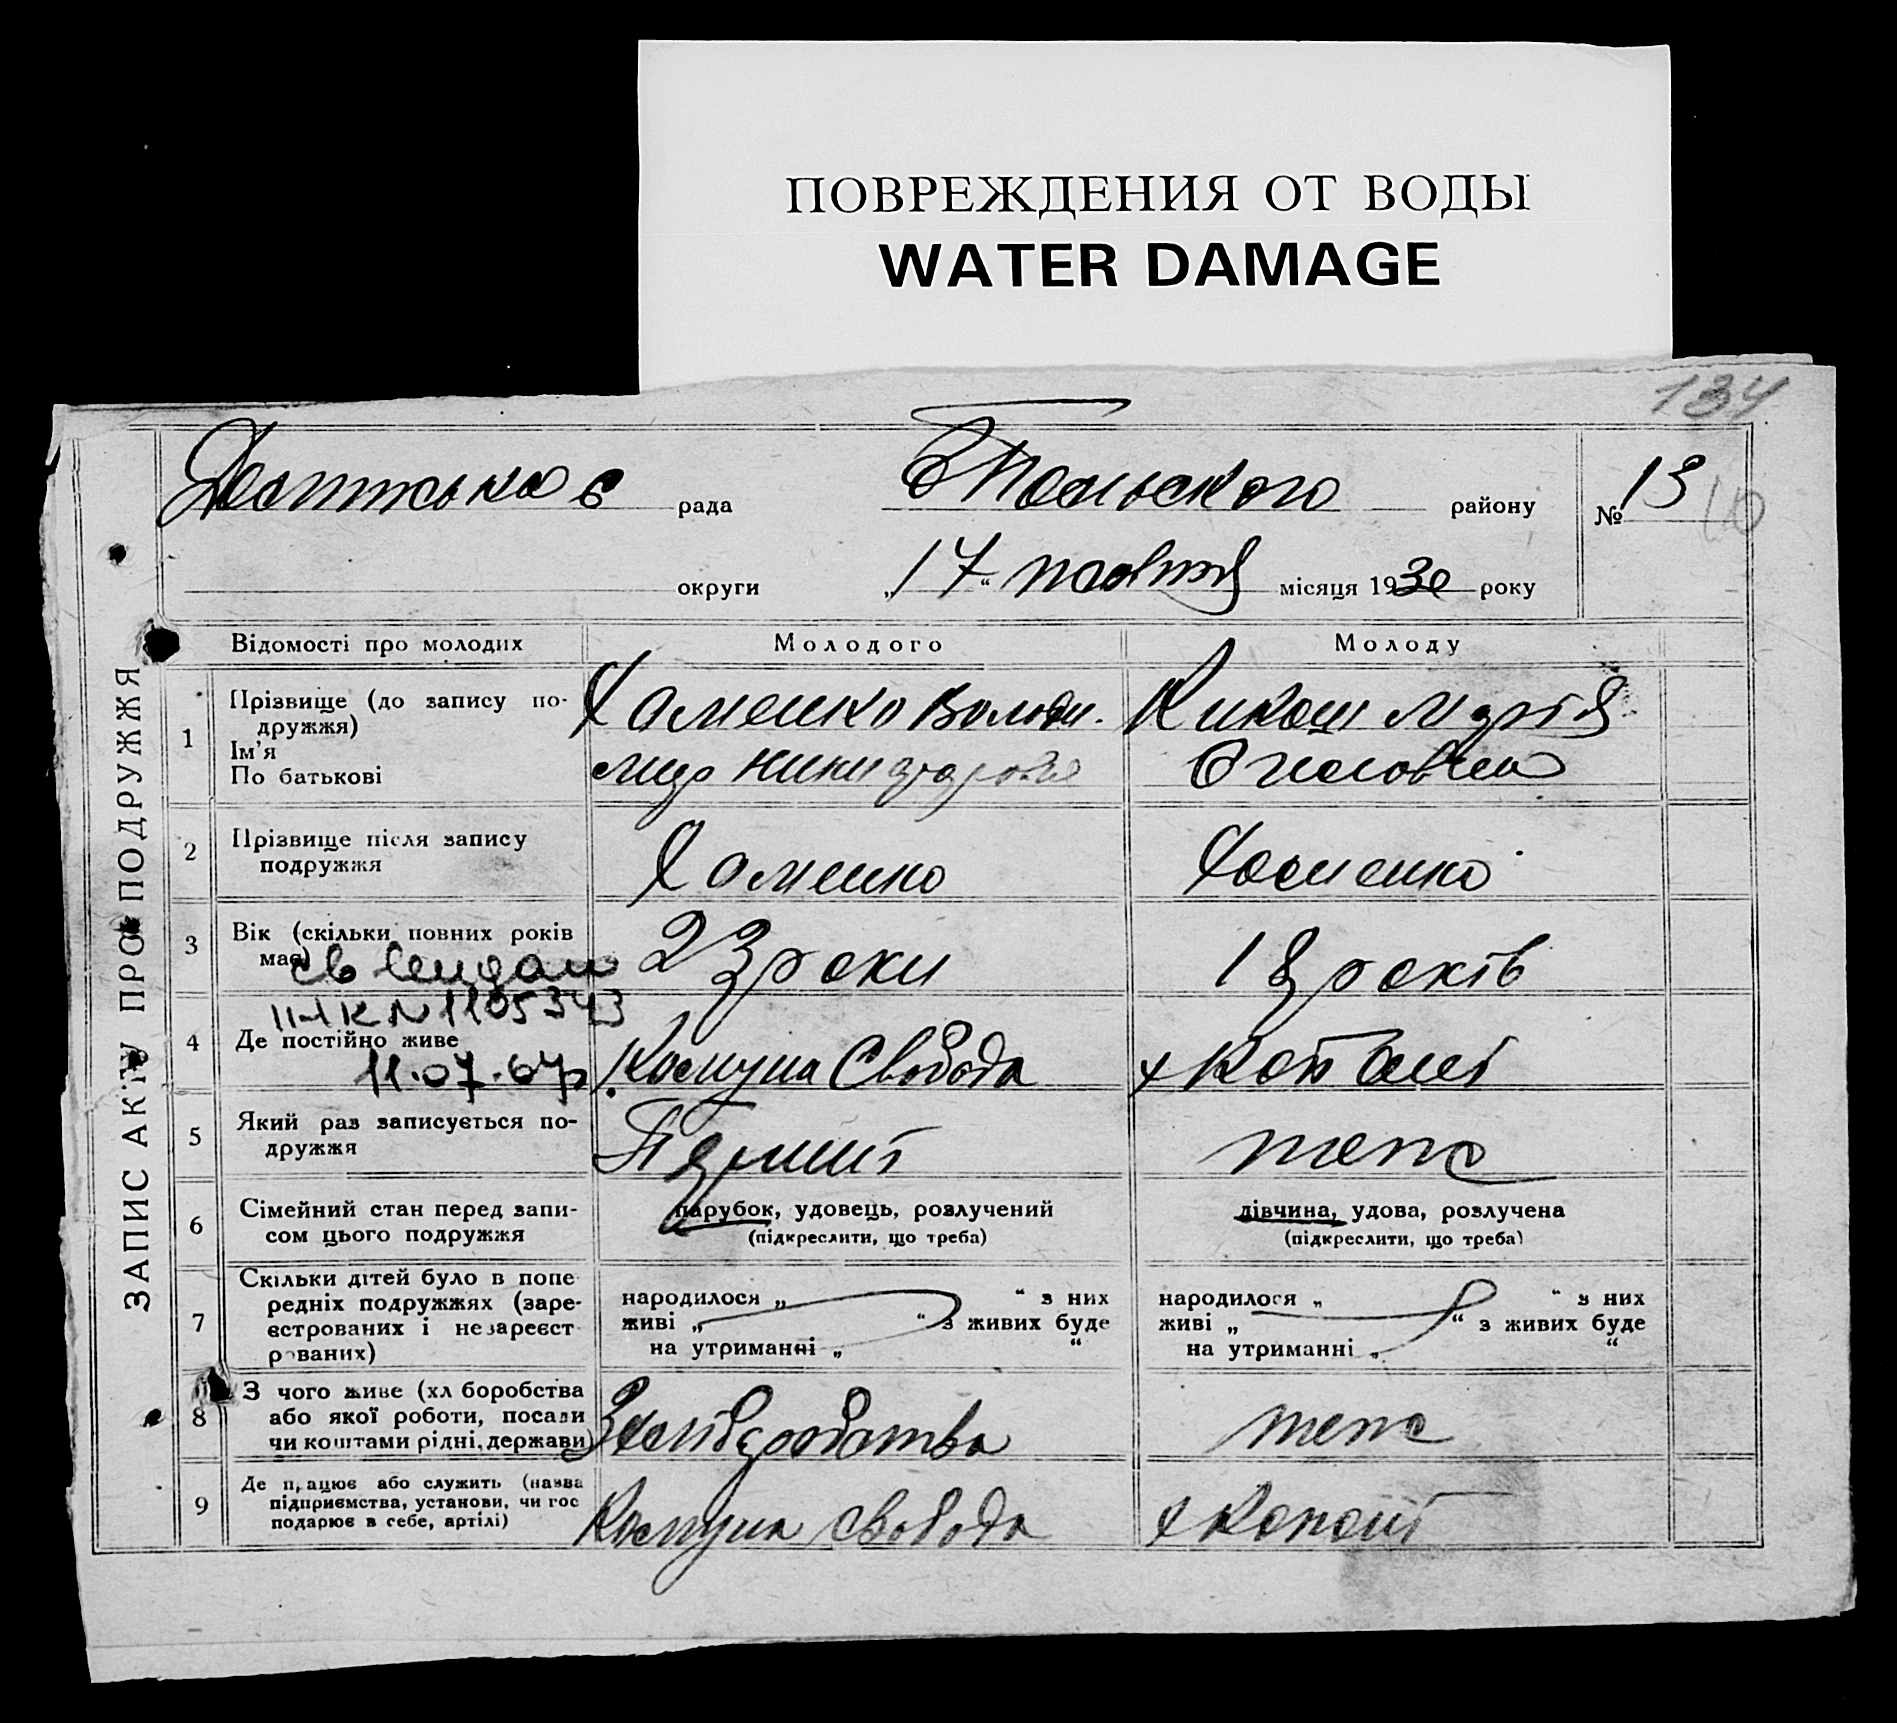 ПОВРЕЖДЕНИЯ ОТ ВОДЫ
WATER DAMAGE
134
рада
району
№ 13
10
округи
„17“ жовтня місяця 1930 року
ЗАПИС АКТУ ПРО ПОДРУЖЖЯ
Відомості про молодих
Молодого
Молоду
1
Прізвище (до запису по-
дружжя)
Ім'я
По батькові
Хоменко Володи-
мир
Марія
2
Прізвище після запису
подружжя
Хоменко
Хоменко
3
Вік (скільки повних років
має)
23 роки
18 років
N 1105343
4
Де постійно живе
11.07.67р
Комуна Свобода
х
5
Який раз записується по-
дружжя
тепс
6
Сімейний стан перед запи-
сом цього подружжя
парубок, удовець, розлучений
(підкреслити, що треба)
дівчина, удова, розлучена
(підкреслити, що треба)
7
Скільки дітей було в попе
редніх подружжях (заре-
єстрованих і незареєст
рованих)
народилося „ “ з них
живі „ “ з живих буде
на утриманні „ “
народилося „ “ з них
живі „ “ з живих буде
на утриманні „ “
8
З чого живе (хл боробства
або якої роботи, посади
чи коштами рідні, держави)
тепс
9
Де працює або служить (назва
підприємства, установи, чи гос
подарює в себе, артілі)
Комуна Свобода
х